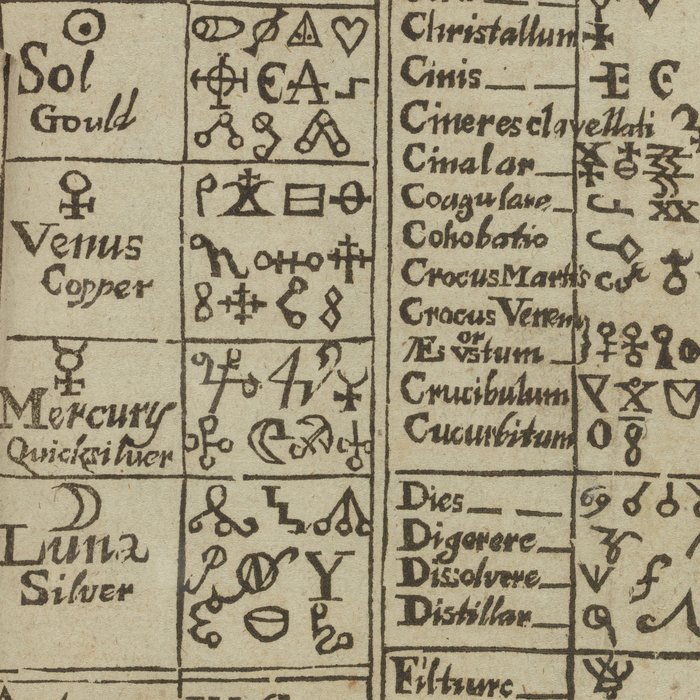 Sol
Gould
Venus
Copper
Mercury
Quicksilver
Luna
Silver
Christallum
Cinis
Cineres clavellati
Cinalar
Coagulare
Cohobatio
Crocus Martis
Crocus Veneris
or
Æs vstum
Crucibulum
Cucurbitum
Dies
Digerere
Dissolvere
Distillar